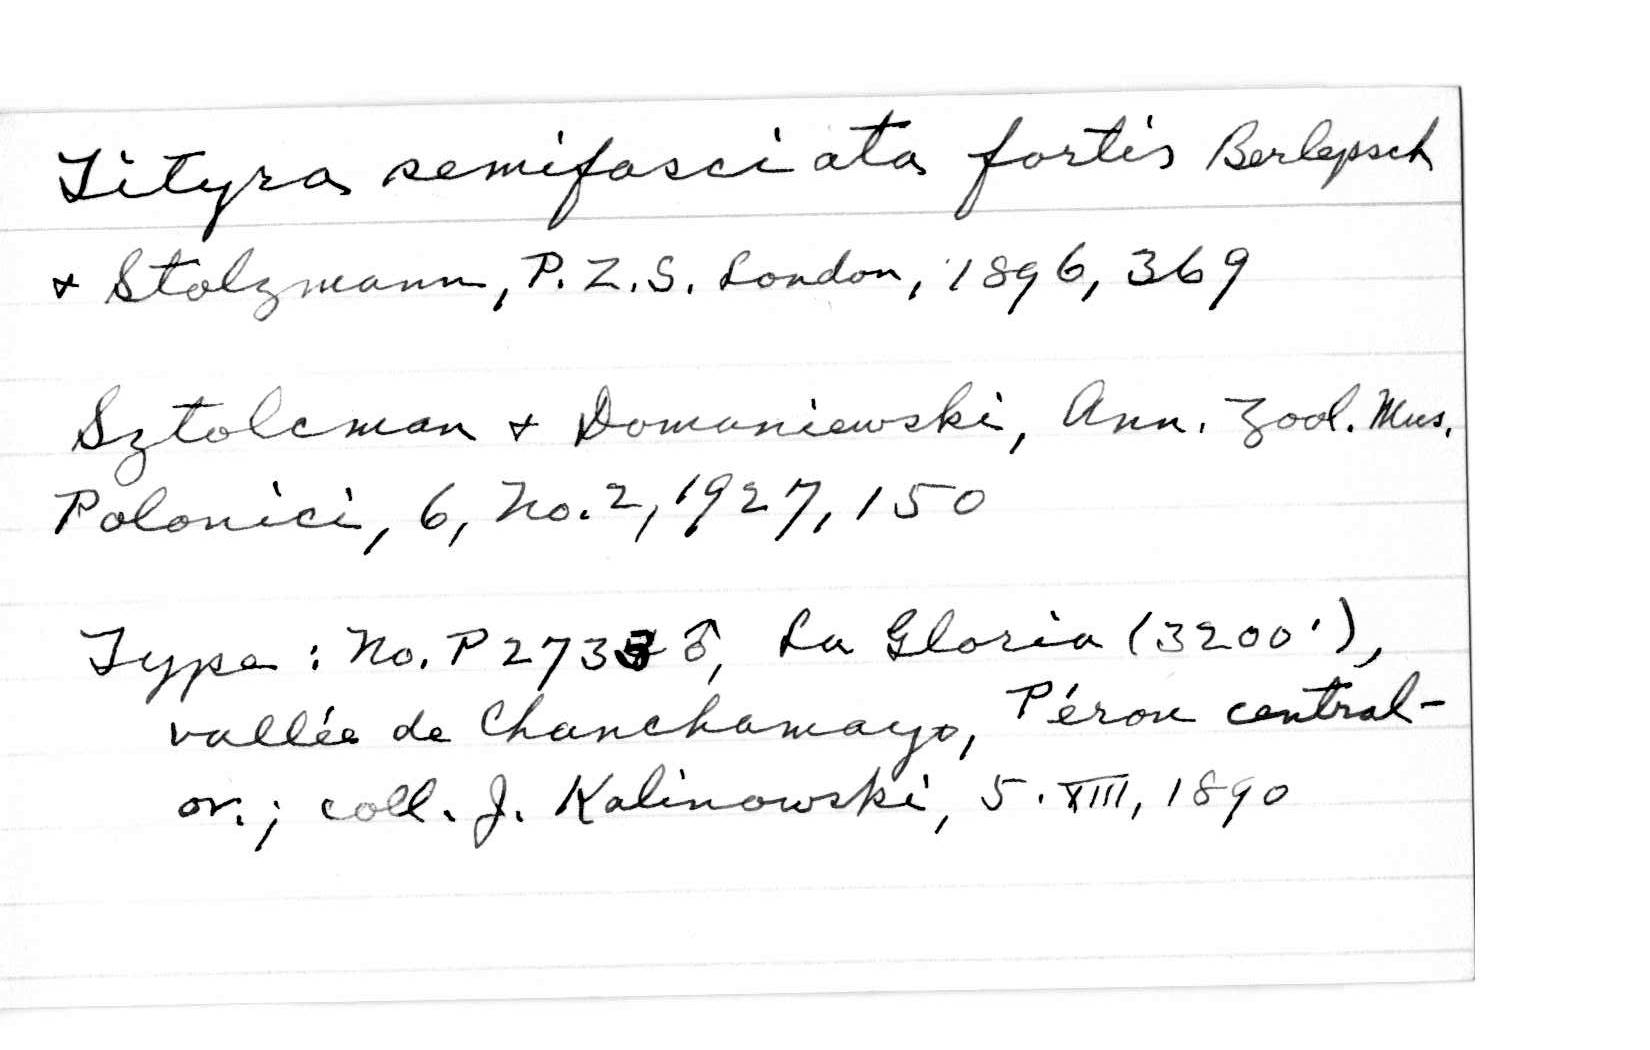 Tityra semifasciata fortis Berlepsch
& Stolzmann, P. Z. S. London, 1896, 369
Sztolcman & Domaniewski, Ann. Zool. Mus.
Polonici, 6, No. 2, 1927, 150
Type : No. P 273 ♂, La Gloria (3200'),
vallée de Chanchamayo, Pérou central-
or.; coll. J. Kalinowski, 5. XIII, 1890